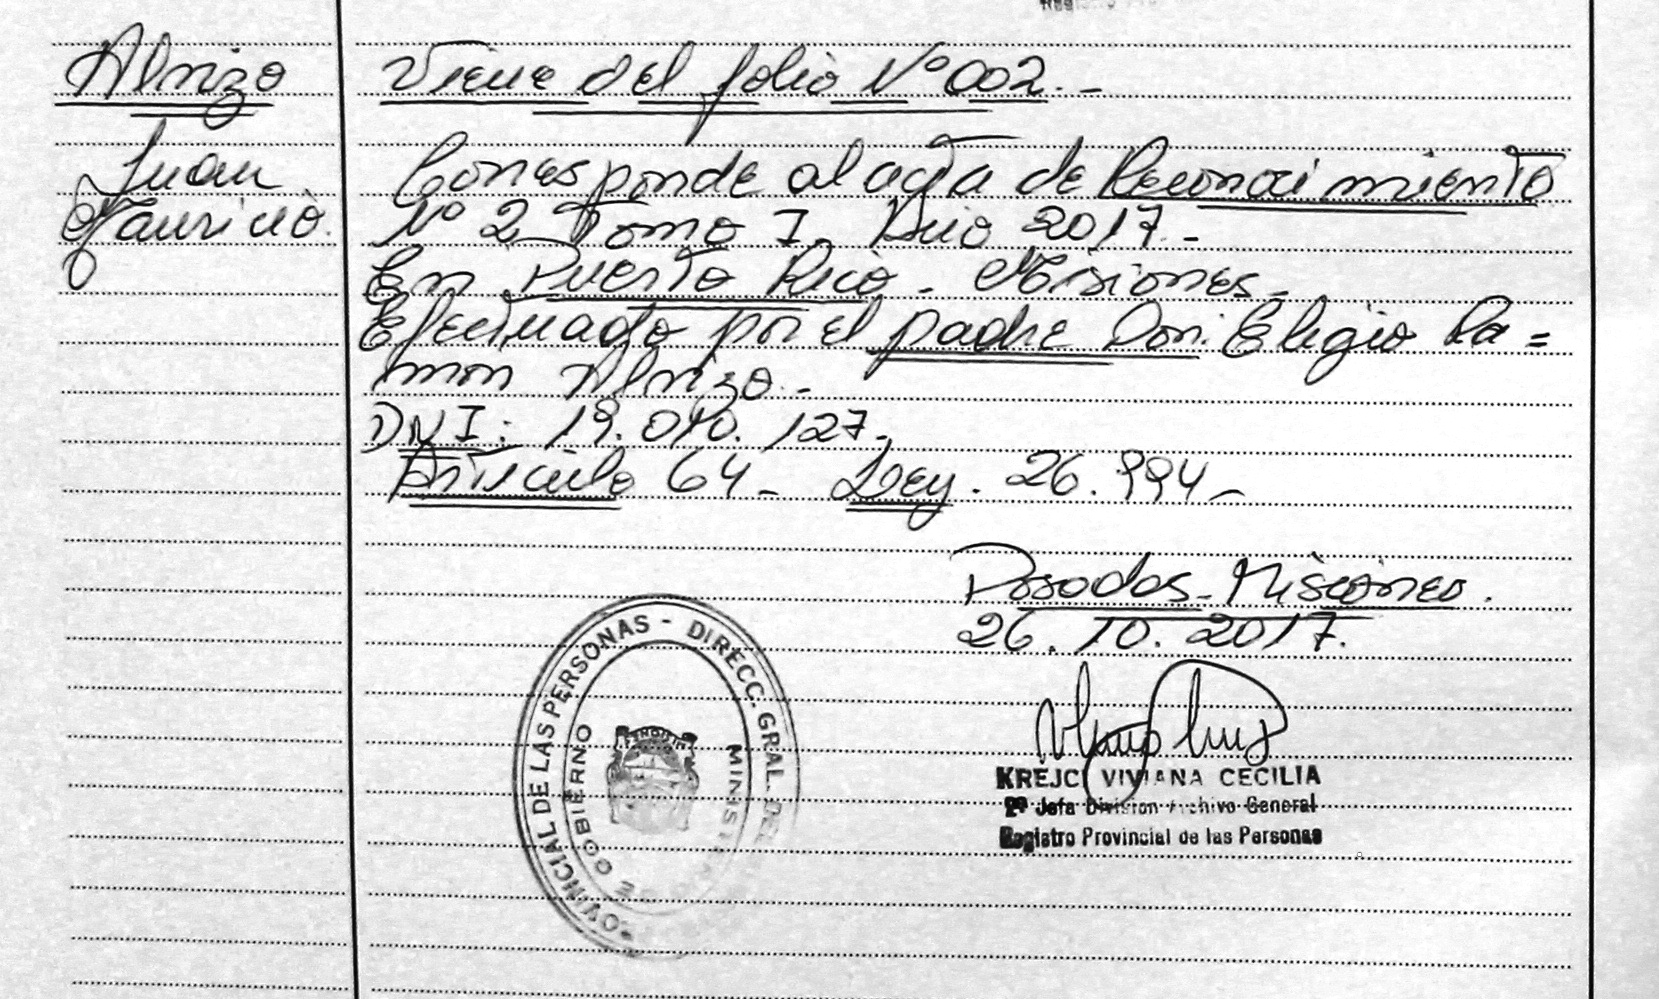 Alnizo
Juan
Mauricio.
Viene del folio N° 002.-
Corresponde al acta de Reconocimiento
N° 2 Tomo I. Año 2017.-
En Puerto Rico - Misiones.-
Efectuado por el padre Don: Eligio Ra=
mon Alnizo.-
DNI: 19.040.127.
Artículo 64 - Ley. 26.994-
Posadas - Misiones.
26.10.2017.
KREJCI VIVIANA CECILIA
2º Jefa División Archivo General
Registro Provincial de las Personas
PROVINCIAL DE LAS PERSONAS - DIRECC. GRAL. DEL
MINISTERIO DE GOBIERNO